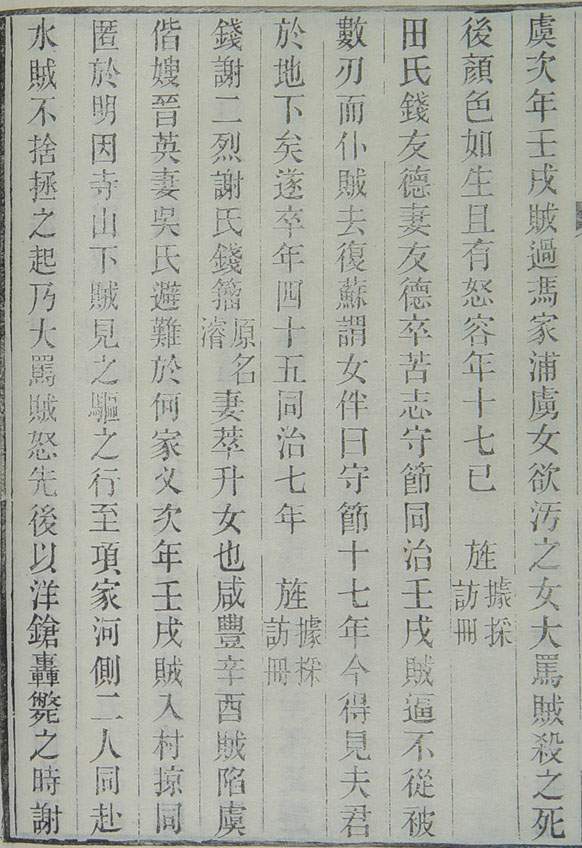 虞次年壬戌賊過馮家浦虜女欲汚之女大罵賊殺之死
後顏色如生且有怒容年十七已 旌據採訪冊
田氏錢友德妻友德卒苦志守節同治壬戌賊逼不從被
數刃而仆賊去復蘇謂女伴曰守節十七年今得見夫君
於地下矣遂卒年四十五同治七年 旌據採訪冊
錢謝二烈謝氏錢籀原名濬妻萃升女也咸豐辛酉賊陷虞
偕嫂晉英妻吳氏避難於何家乂次年壬戌賊入村掠同
匿於明因寺山下賊見之驅之行至項家河側二人同赴
水賊不捨拯之起乃大罵賊怒先後以洋鎗轟斃之時謝